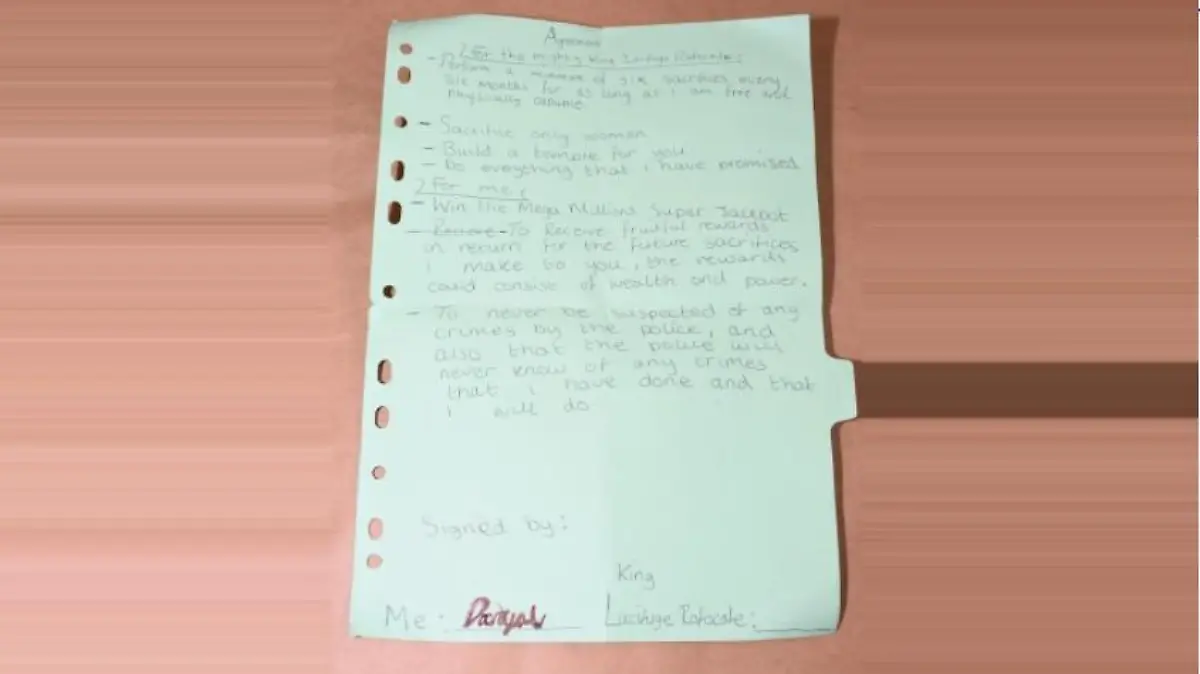 Agreement
For the mighty king Lucifuge Rofocale:
- Perform a minimum of six sacrifices every
six months for as long as I am free and
physically capable.
- Sacrifice only women
- Build a temple for you
- Do everything that i have promised
For me:
- Win the Mega Millions Super Jackpot
- Receive - To Receive fruitful rewards
in return for the future sacrifices
i make to you, the rewards
could consist of wealth and power.
- To never be suspected of any
crimes by the police, and
also that the police will
never know of any crimes
that i have done and that
i will do
Signed by:
King
Me: Danyal Lucifuge Rofocale: